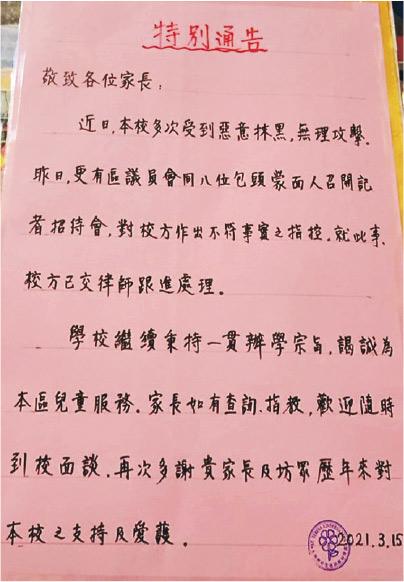 特別通告
敬致各位家長：
近日,本校多次受到惡意抹黑,無理攻擊。
昨日,更有區議員會同八位包頭蒙面人召開記
者招待會,對校方作出不符事實之指控。就此事、
校方已交律師跟進處理。
學校繼續秉持一貫辦學宗旨,謁誠為
本區兒童服務。家長如有查詢、指教,歡迎隨時
到校面談。再次多謝貴家長及坊眾歷年來對
本校之支持及愛護。
2021.3.15